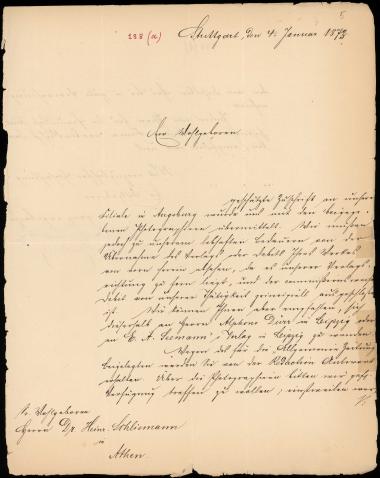 5
288 (a)
Stuttgart, den 4. Januar 1873
Euer Wohlgeboren
geschätzte Zuschrift an unsere
Filiale in Augsburg wurde uns mit den beigege-
benen Photographieen übermittelt. Wir müssen
jedoch zu unserem lebhaften Bedauern von der
Übernahme des Verlags oder Debits Ihres Werkes
von vorn herein absehen, da es unserer Verlags-
richtung zu fern liegt, und der commissionsweise
Debit von unserer Thätigkeit principiell ausgeschlossen
ist. Wir können Ihnen aber empfehlen, sich
dieserhalb an Herrn Alphons Dürr in Leipzig oder
an E. A. Seemann's Verlag in Leipzig zu wenden.
Wegen des für die Allgemeine Zeitung
Beigelegten werden Sie von der Redaction Antwort
erhalten. Über die Photographieen bitten wir gefl.
Verfügung treffen zu wollen; einstweilen
Sr. Wohlgeboren
Herrn Dr. Heinr. Schliemann
in
Athen.